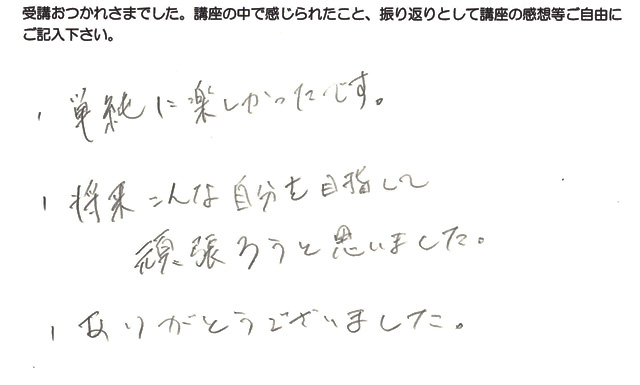 受講おつかれさまでした。講座の中で感じられたこと、振り返りとして講座の感想等ご自由に
ご記入下さい。
、単純に楽しかったです。
、将来こんな自分を目指して
頑張ろうと思いました。
、ありがとうございました。